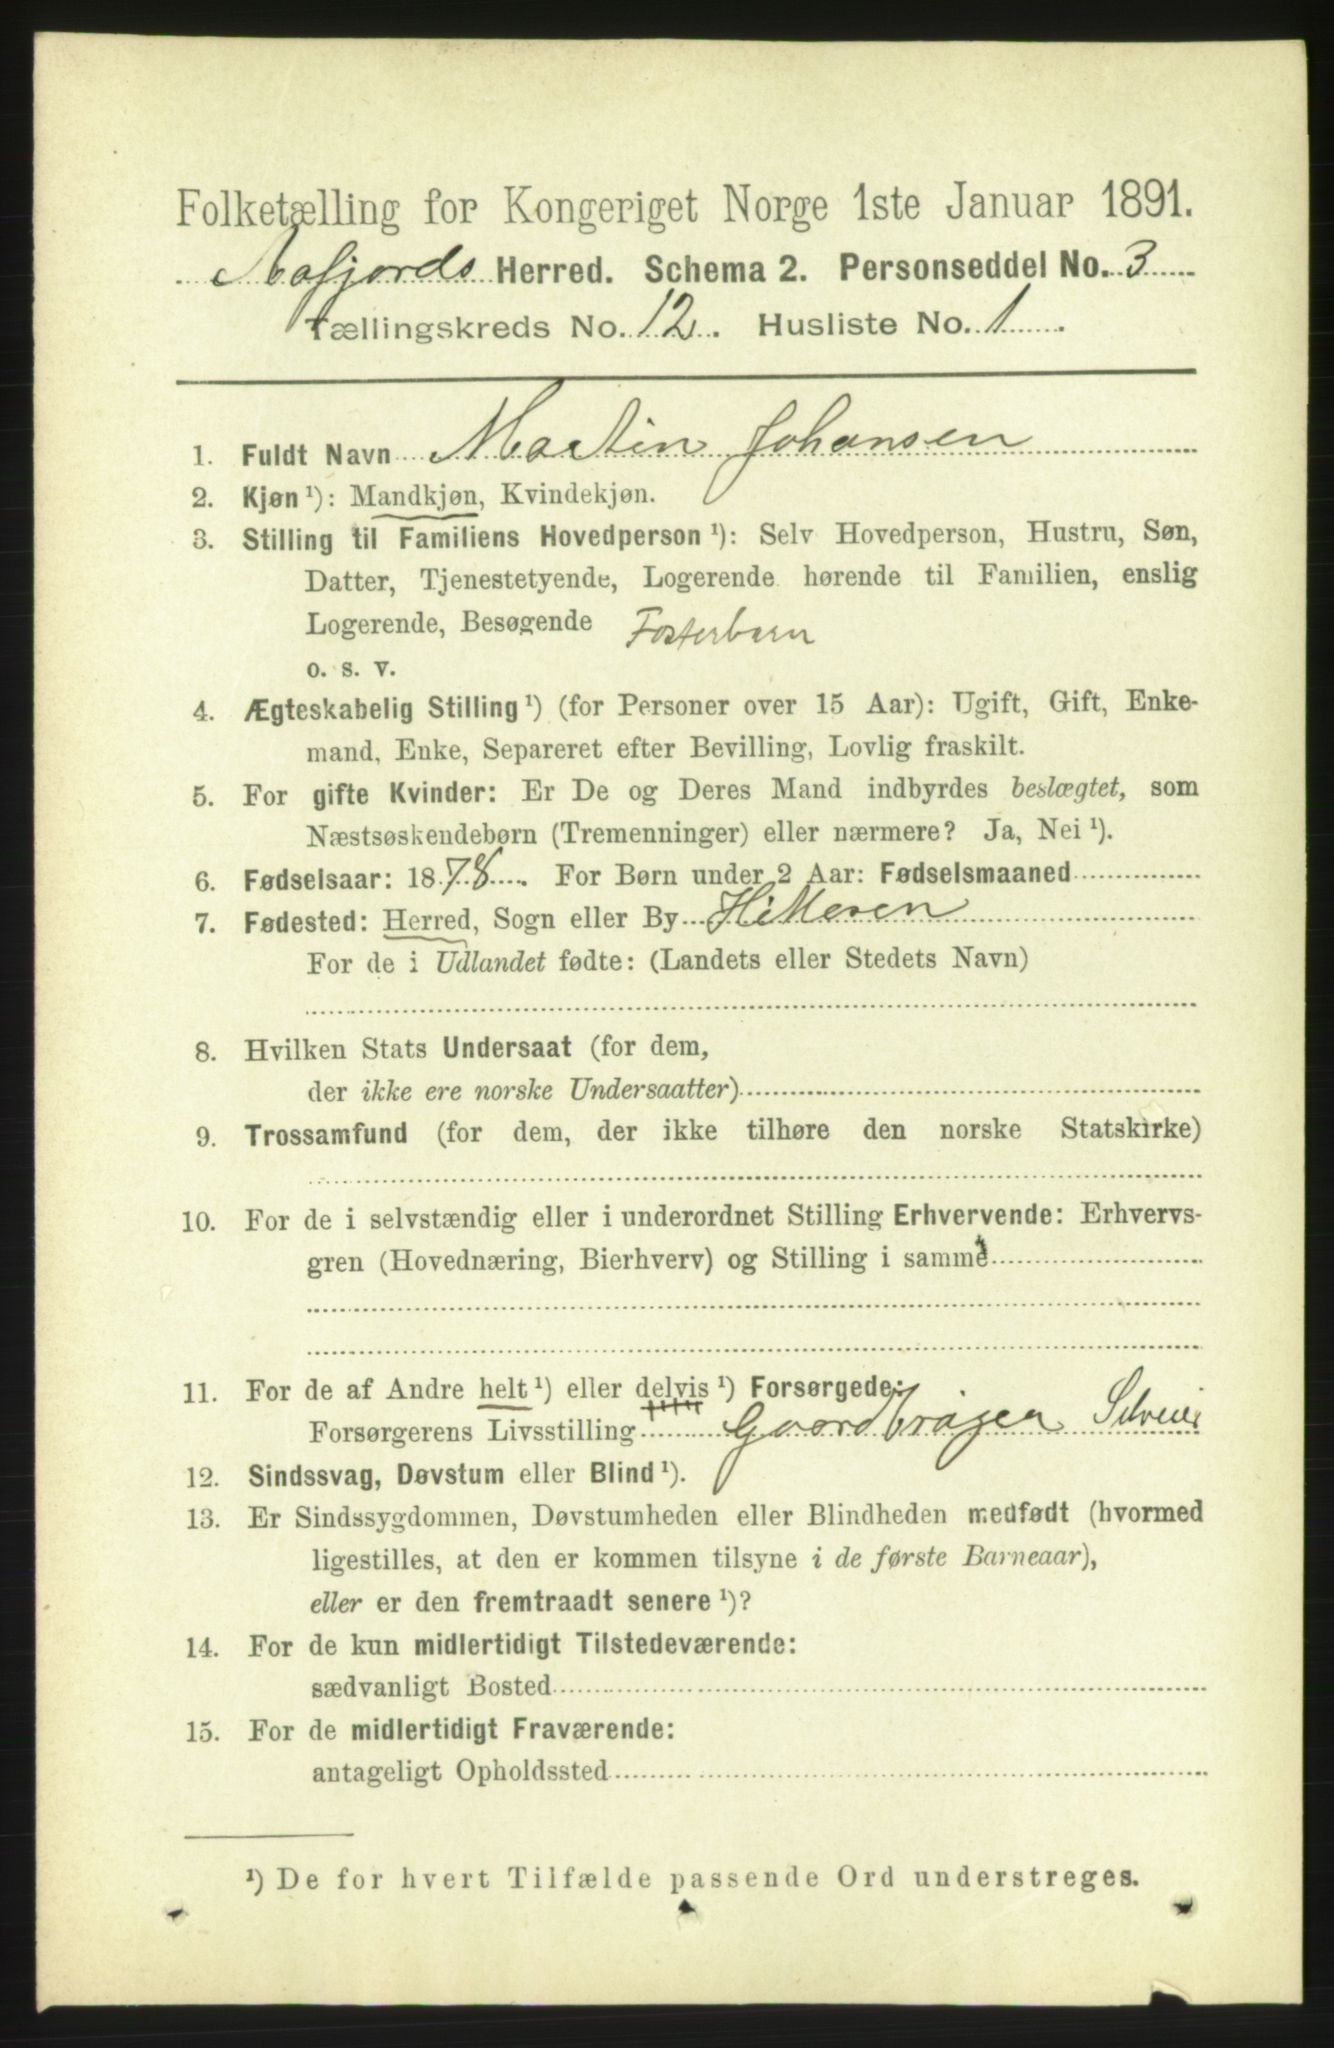 Folketælling for Kongeriget Norge 1ste Januar 1891.
Aafjords Herred. Schema 2. Personseddel No. 3
Tællingskreds No. 12. Husliste No. 1
1. Fuldt Navn Martin Johansen
2. Kjøn ¹): Mandkjøn, Kvindekjøn.
3. Stilling til Familiens Hovedperson ¹): Selv Hovedperson, Hustru, Søn,
Datter, Tjenestetyende, Logerende hørende til Familien, enslig
Logerende, Besøgende Fosterbarn
o. s. v.
4. Ægteskabelig Stilling ¹) (for Personer over 15 Aar): Ugift, Gift, Enke-
mand, Enke, Separeret efter Bevilling, Lovlig fraskilt.
5. For gifte Kvinder: Er De og Deres Mand indbyrdes beslægtet, som
Næstsøskendebørn (Tremenninger) eller nærmere? Ja, Nei ¹).
6. Fødselsaar: 1878. For Børn under 2 Aar: Fødselsmaaned
7. Fødested: Herred, Sogn eller By Hitteren
For de i Udlandet fødte: (Landets eller Stedets Navn)
8. Hvilken Stats Undersaat (for dem,
der ikke ere norske Undersaatter)
9. Trossamfund (for dem, der ikke tilhøre den norske Statskirke)
10. For de i selvstændig eller i underordnet Stilling Erhvervende: Erhvervs-
gren (Hovednæring, Bierhverv) og Stilling i samme
11. For de af Andre helt ¹) eller delvis ¹) Forsørgede:
Forsørgerens Livsstilling Gaardbrúger Selveier
12. Sindssvag, Døvstum eller Blind ¹).
13. Er Sindssygdommen, Døvstumheden eller Blindheden medfødt (hvormed
ligestilles, at den er kommen tilsyne i de første Barneaar),
eller er den fremtraadt senere ¹)?
14. For de kun midlertidigt Tilstedeværende:
sædvanligt Bosted
15. For de midlertidigt Fraværende:
antageligt Opholdssted
¹) De for hvert Tilfælde passende Ord understreges.